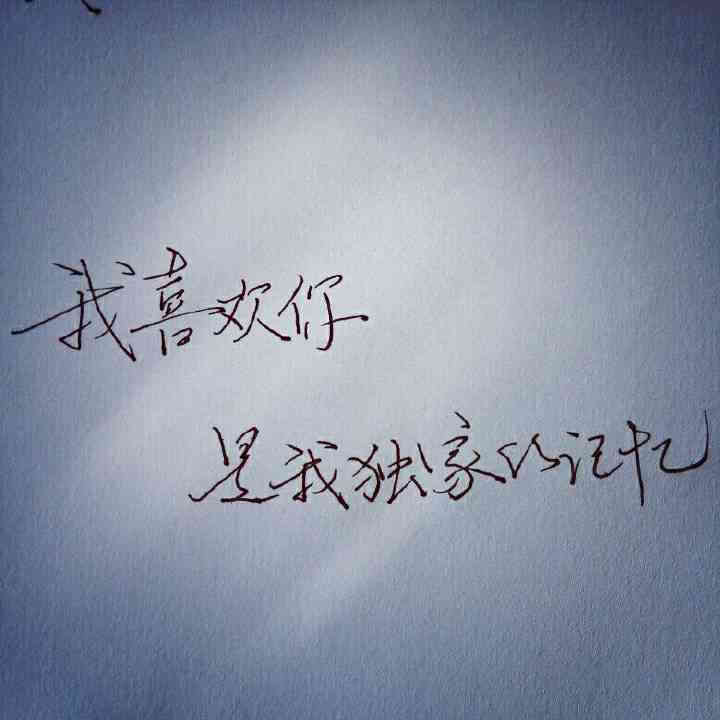 我喜欢你
是我独家的记忆